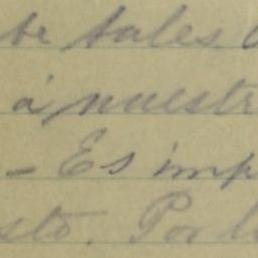 be tales
á nuestr
- Es imp
sto. Por